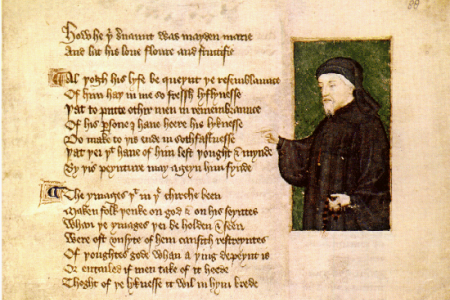 88
How he þi seruaunt was mayden marie
And lat his loue floure and fructifie
Al þogh his lyfe be queynt þe resemblaunce
Of him haþ in me so fressh lyflynesse
Þat to putte othir men in remembraunce
Of his persone I haue heere his lyknesse
Do make to þis ende in sothfastnesse
Þat þei þt haue of him lest þought & mynde
By þis peynture may ageyn him fynde
The ymages þt in þe chirche been
Maken folk þenke on god & on his seyntes
Whan þe ymages þei be holden & seen
Were oft vnsyte of hem causith restreyntes
Of þoughtes gode whan a þing depeynt is
Or entailed if men take of it heede
Thoght of þe lyknesse it wil in hym brede